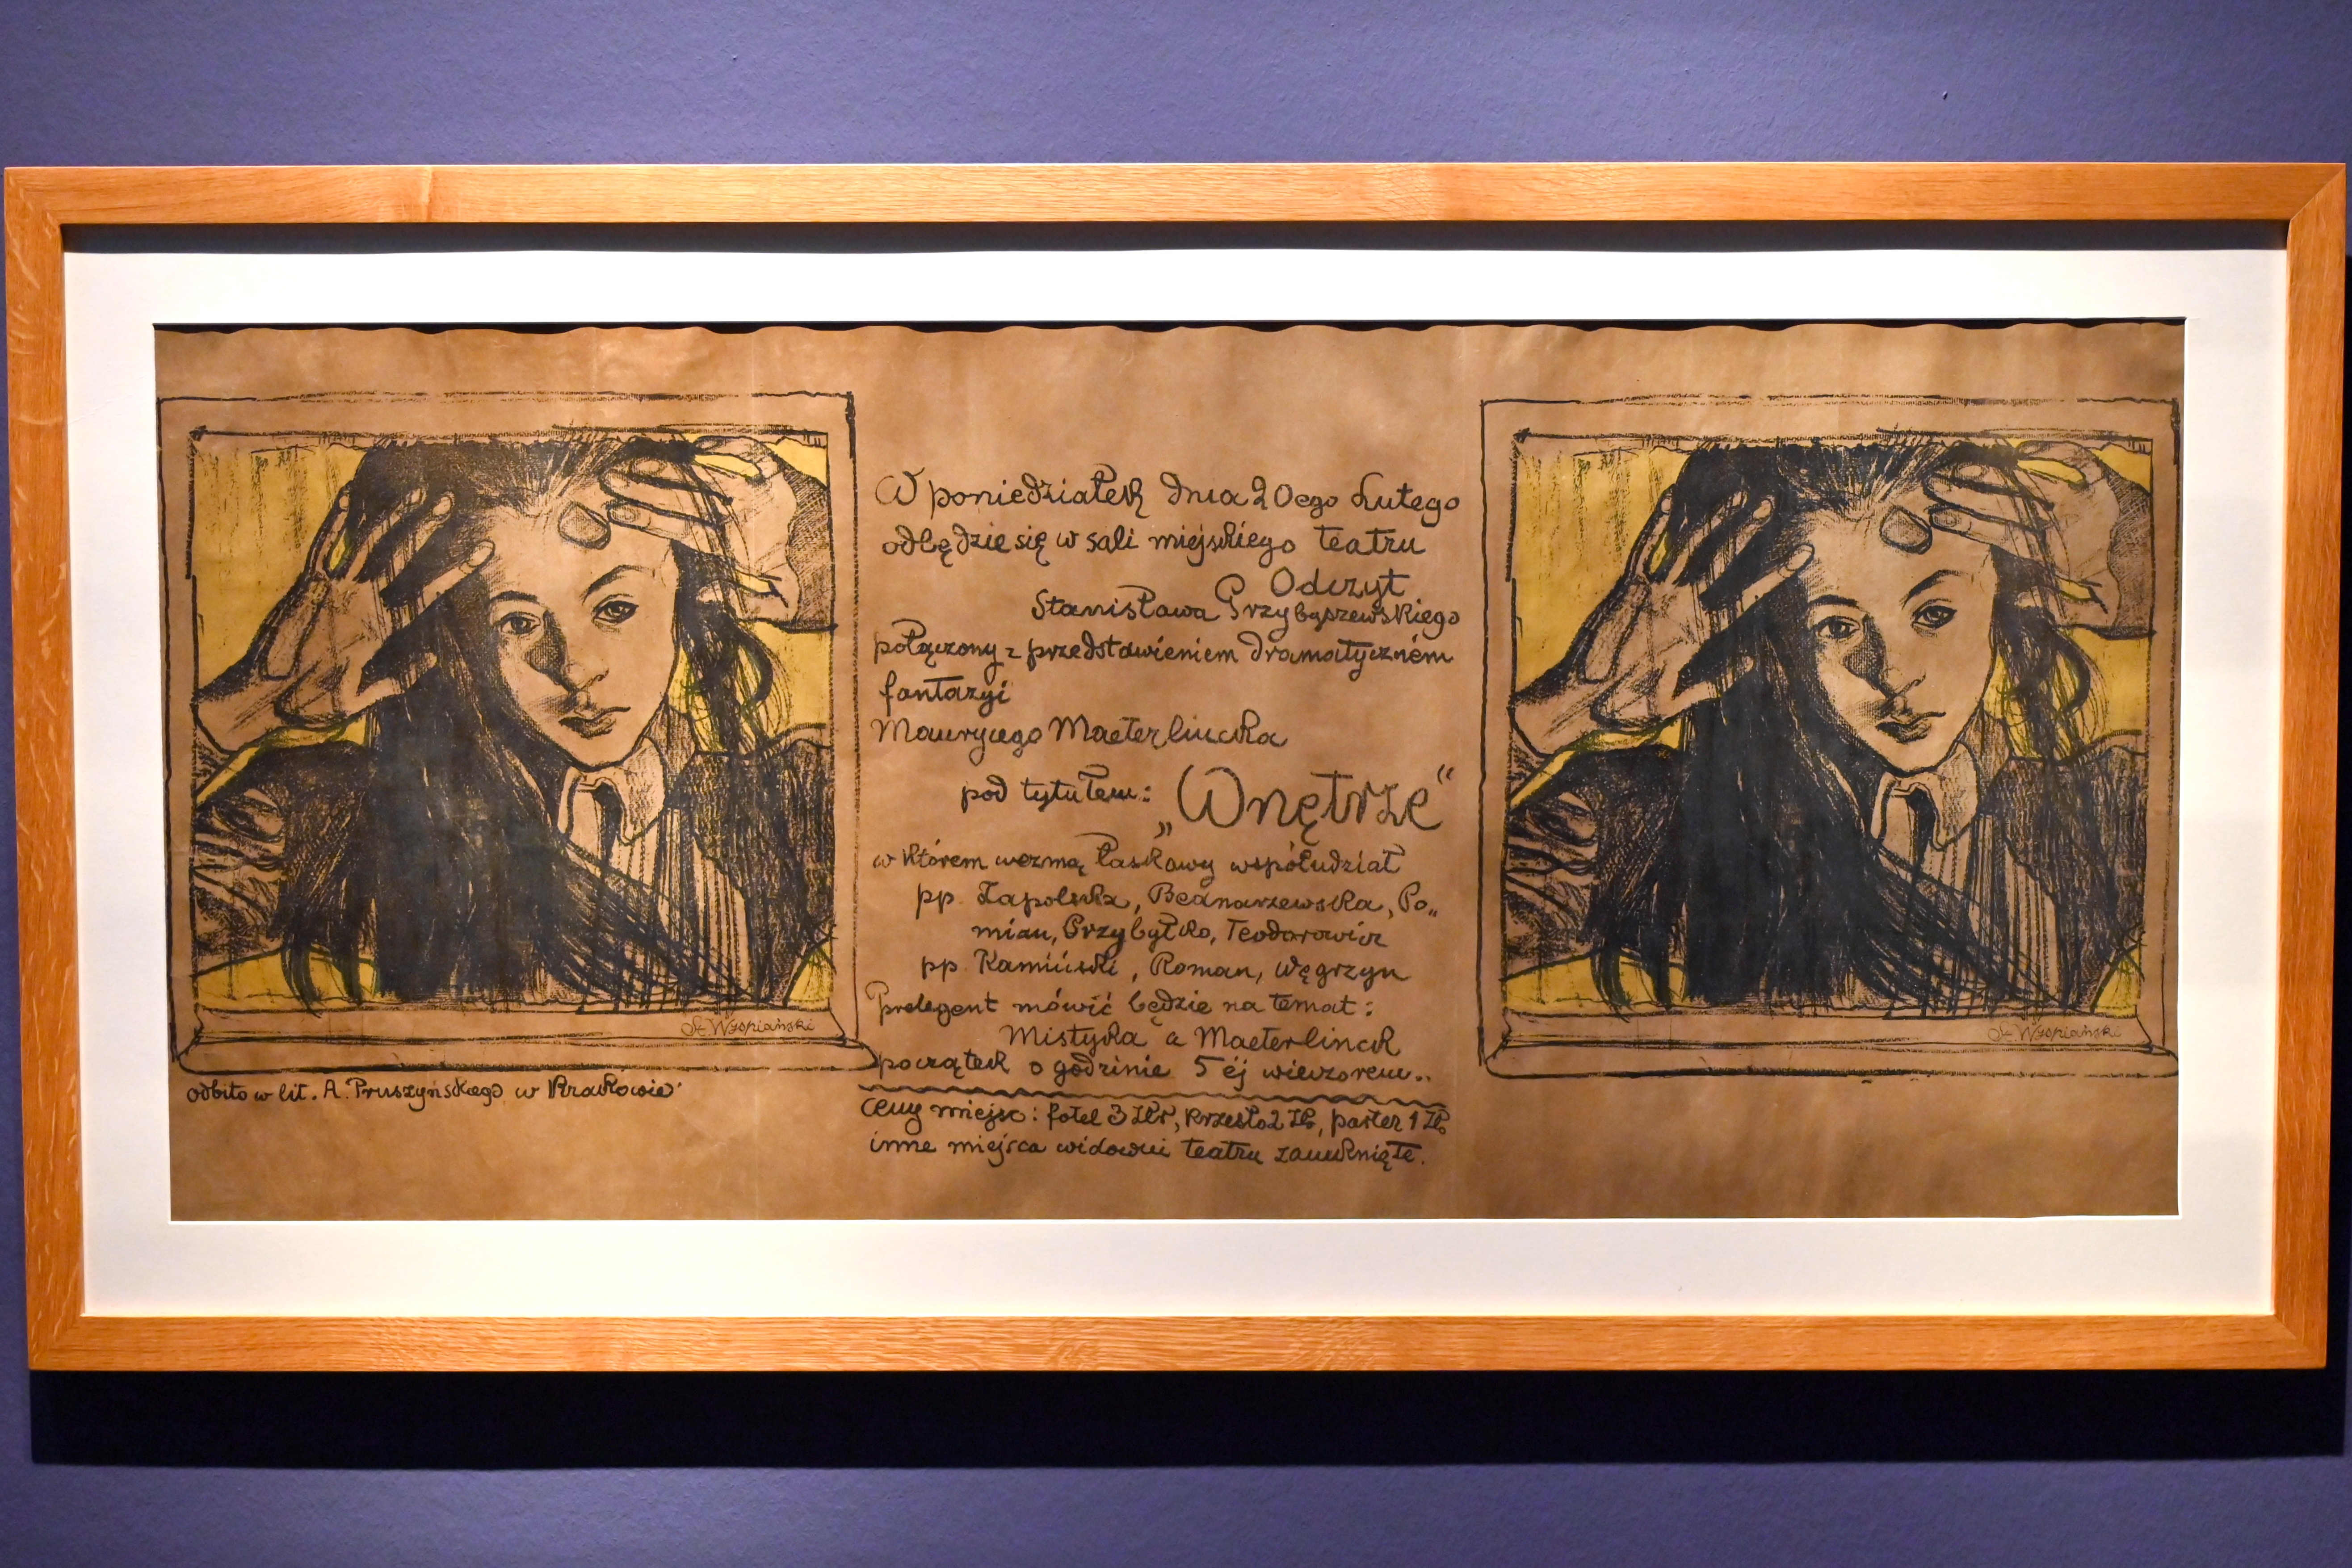 W poniedziałek dnia 20ego Lutego
odbędzie się w sali miejskiego teatru
Odczyt
Stanisława Przybyszewskiego
połączony z przedstawieniem dramatyczném
fantazyi
Maurycego Maeterlincka
pod tytułem: „Wnętrze“
w którem wezmą łaskawy współudział
pp. Zapolska, Bednarzewska, Po„
mian, Przybyłko, Teodorowicz
pp. Kamiński, Roman, Węgrzyn
Prelegent mówić będzie na temat:
Mistyka a Maeterlinck
początek o godzinie 5éj wieczorem..
Ceny miejsc: fotel 3 Złr, krzesło 2 Zł, parter 1 Zł
inne miejsca widowni teatru zamknięte.
St. Wyspiański
odbito w lit. A. Pruszyńskiego w Krakowie
St. Wyspiański